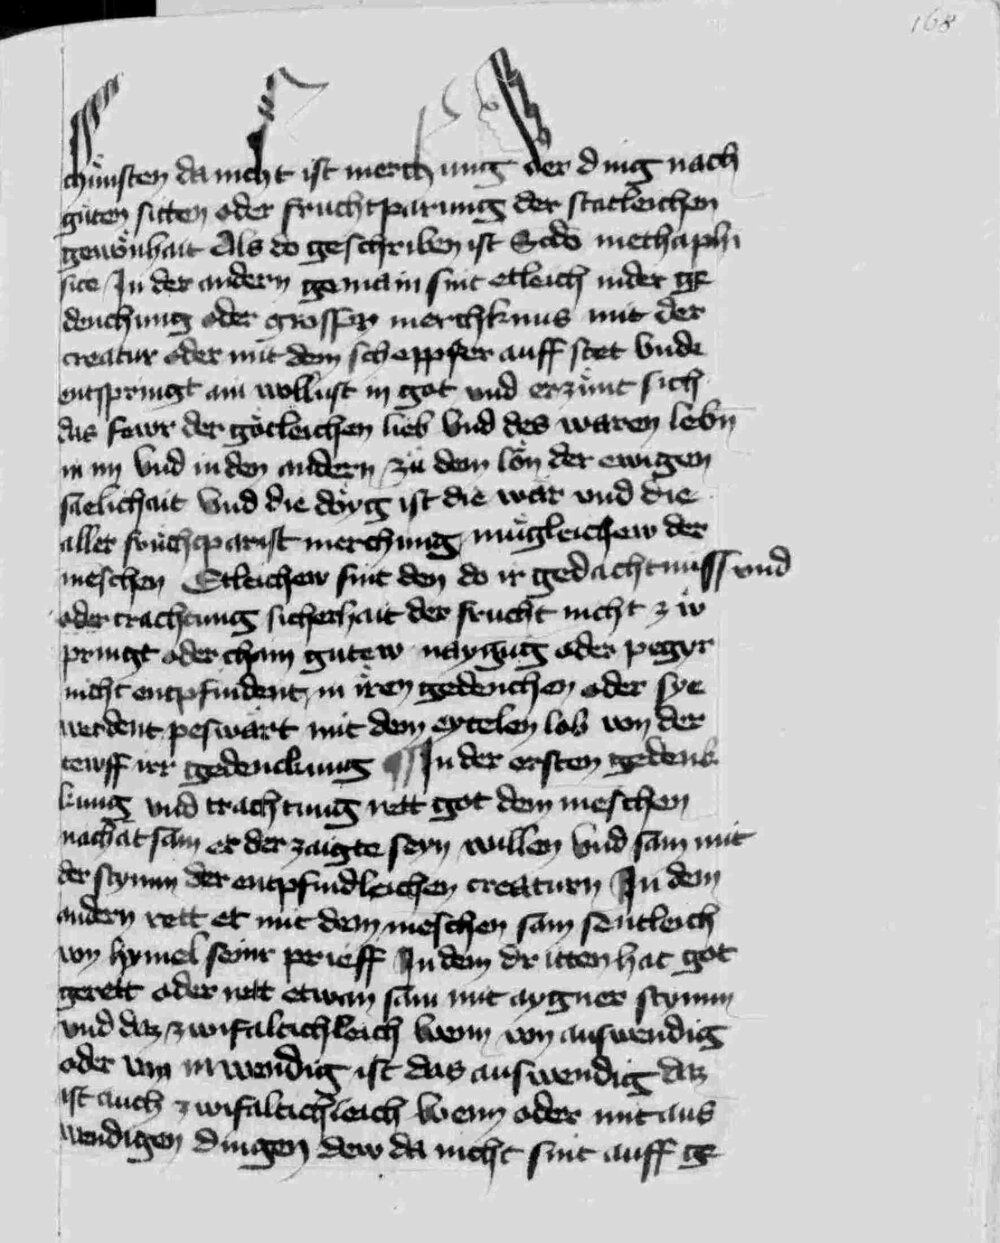 168
chünsten da nicht ist merchung der ding nach
güten sitten oder fruchtparung der statleichen
gewonhait Als do geschriben ist Scdo methaphi
sice In der andern gemain sint etleich in der ge
denchung oder grosser merchknus mit der
creatur oder mit dem scheppfer auff stet vnde
entspringt ain wollust in got vnd erzünt sich
das fewr der götleichen lieb vnd des waren lebn
in im vnd in den andern zu dem lon der ewigen
saelichait vnd die dryg ist die war vnd die
aller früchtparist merchung mügleichew der
meschen Etleichew sint den do ir gedachtnuss vnd
oder trachtung sicherhait der frucht nicht zw
pringt oder cham gutew naygug oder pegyr
nicht entpfindent in iren gedenchen oder sye
werdent peswärt mit dem eytelen lob von der
tewff irr gedenckung In der ersten gedenk
kung vnd trachtung rett got dem meschen
nachat sam er der zaigte seyn willen vnd sam mit
der stymm der entpfindleichen creaturn In dem
andern rett er mit dem meschen sam sentleich
von hymel seinr prieff In dem dritten hat got
gerett oder rett etwan sam mit aygner stymm
vnd daz zwifaltichleich wenn von auswendig
oder von inwendig ist das auswendig daz
ist auch zwifaltichleich wenn oder mit aus
wendigen dingen dew da nicht sint auff ge